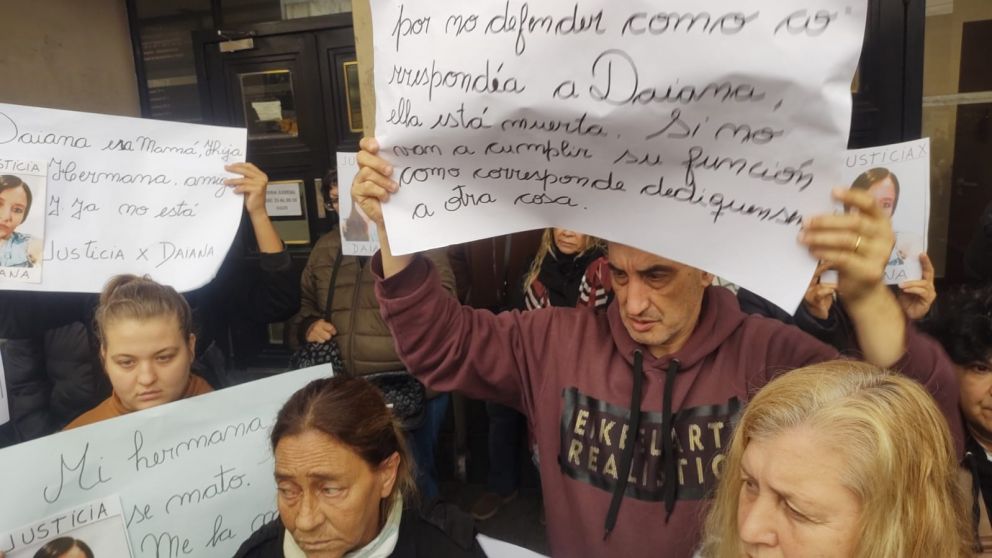 por no defender como co
rrespondía a Daiana,
ella está muerta. Si no
van a cumplir su función
como corresponde dediquensen
a otra cosa.
Daiana era Mamá, Hija
Hermana. amig
Y Ya no está
JUSTICIA X DAIANA
JUSTICIA
DAIANA
JUSTICIA X
Mi hermana
se mato.
Me la
JUSTICIA
REALISTIC